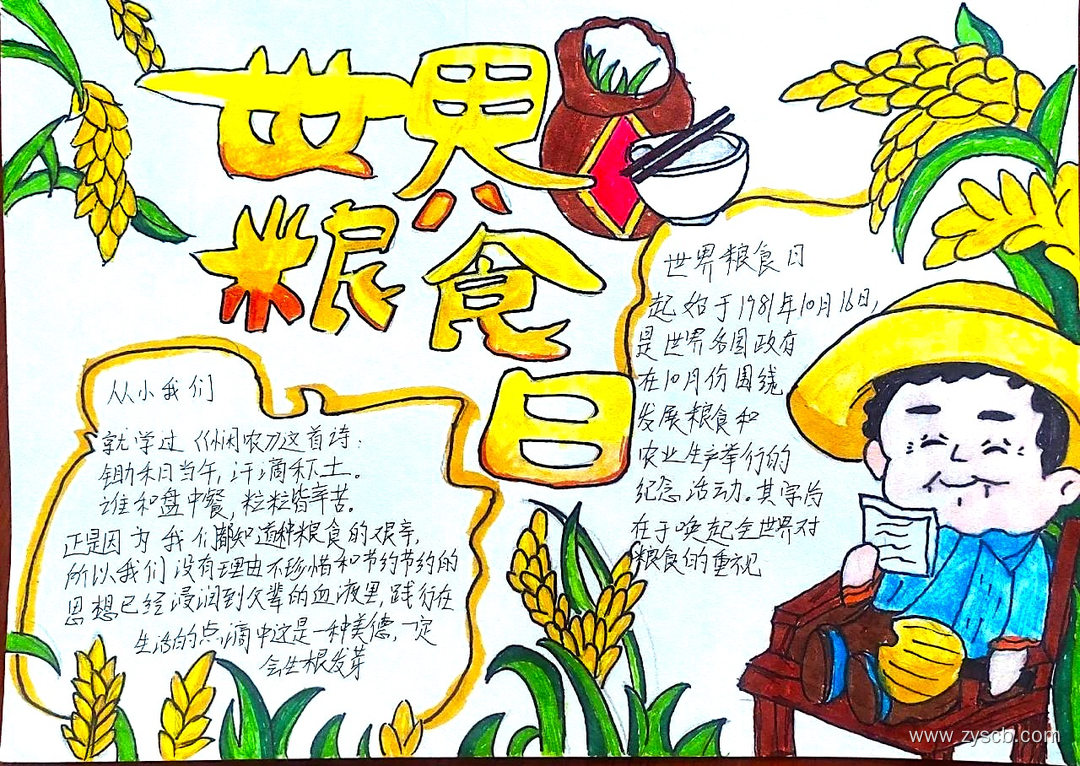 世界
粮食
日
世界粮食日
起始于1981年10月16日,
是世界各国政府
在10月份围绕
发展粮食和
农业生产举行的
纪念活动。其宗旨
在于唤起全世界对
粮食的重视
从小我们
就学过《悯农》这首诗:
锄禾日当午,汗滴禾下土。
谁知盘中餐,粒粒皆辛苦。
正是因为我们都知道种粮食的艰辛,
所以我们没有理由不珍惜和节约节约的
思想已经浸润到父辈的血液里,践行在
生活的点滴中这是一种美德,一定
会生根发芽
www.zyscb.com